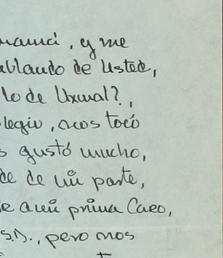 mamá, y me
ablando de Usted,
lo de Uxmal?,
legio, nos tocó
s gustó mucho,
de de mi parte,
e a mi prima Caro,
S.D., pero nos